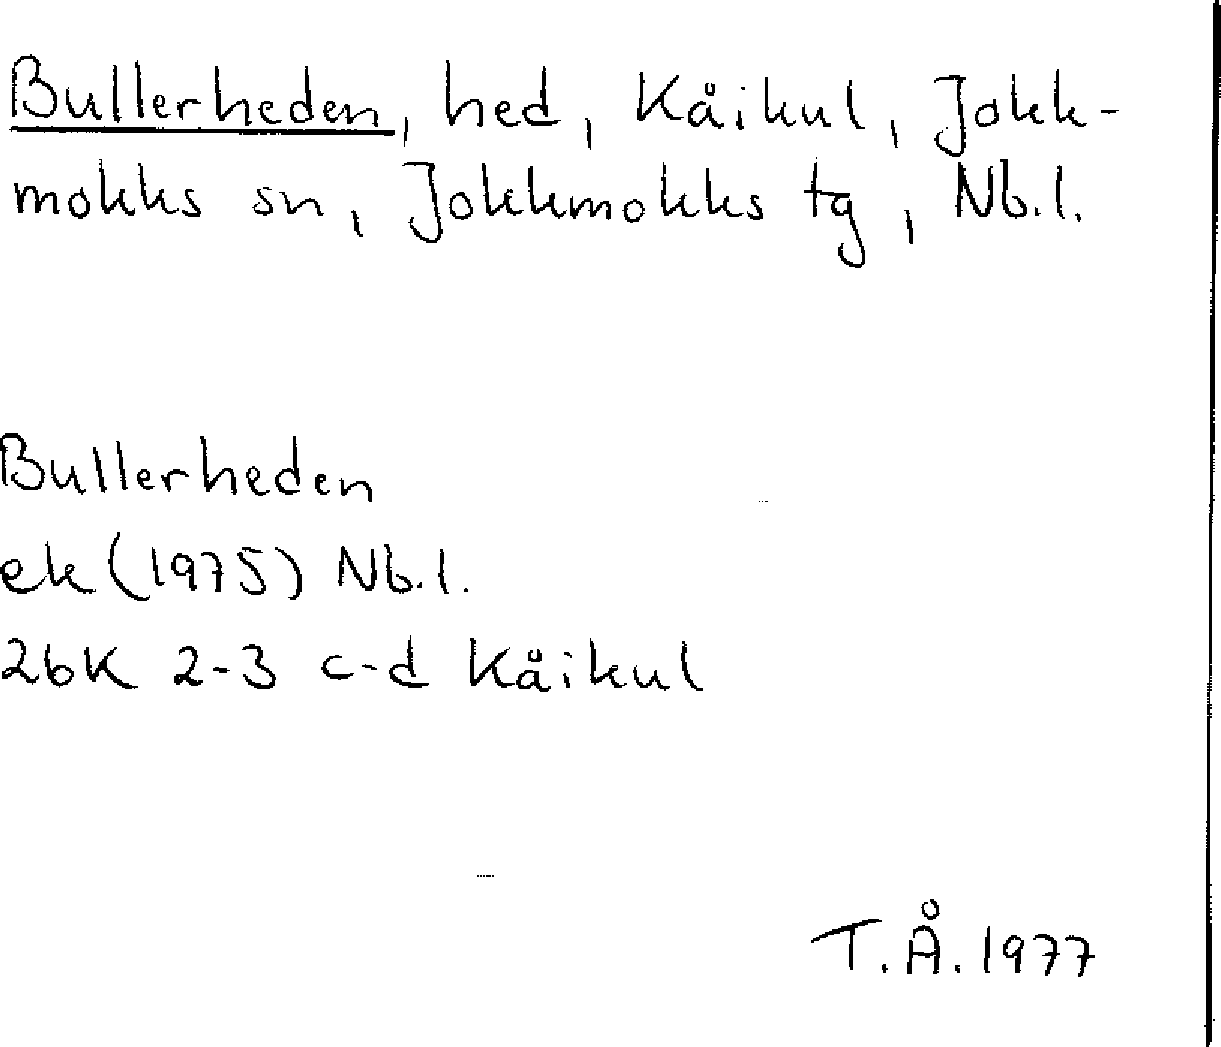 Bullerheden, hed, Kåikul, Jokk-
mokks sn, Jokkmokks tg, Nb.l.
Bullerheden
ek (1975) Nb.l.
26K 2-3 c-d Kåikul
T.Å. 1977